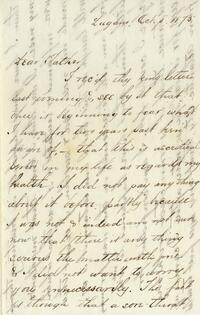 Lugano, Oct 4. 1875
Dear Father,
I rec'd thy kind letter
last evening & see by it that
thee is beginning to fear what
I have for two years past been
aware of,— that this is a critical
time in my life as regards my
health, I did not pay anything
about it before partly because
I was not & indeed am not sure
now that there is any thing
serious the matter with me
& I did not want to worry
you unnecessarily. The fact
is though that a con